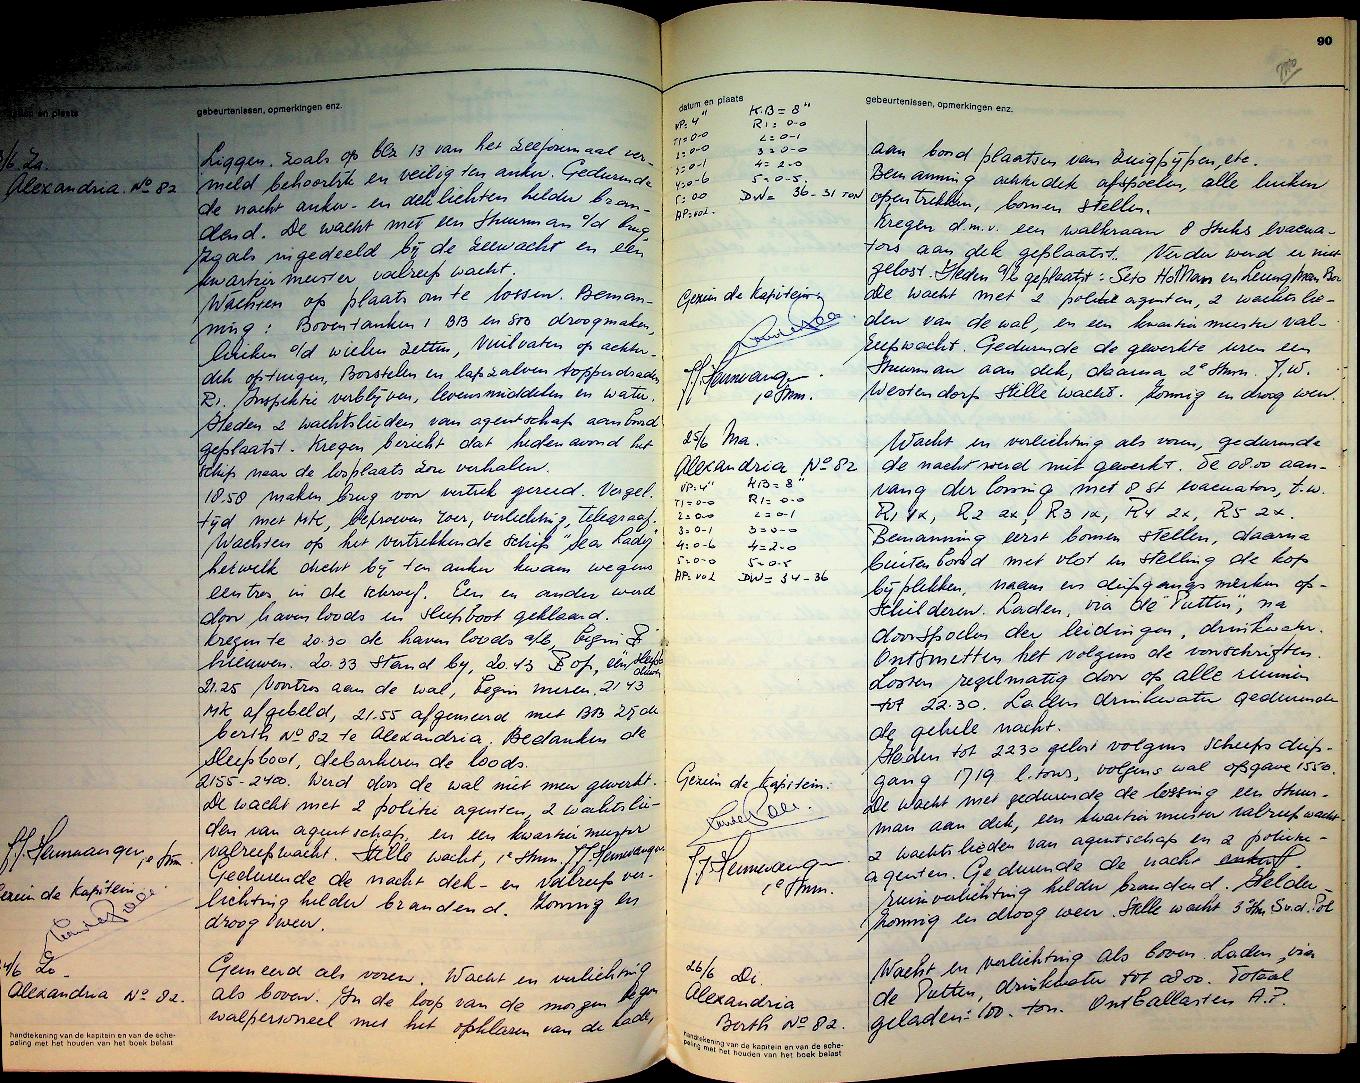 datum en plaats
gebeurtenissen, opmerkingen enz.
3/6 Za.
Alexandria. Nº 82
Liggen. Zoals op blz 13 van het zeejournaal ver-
meld behoorlijk en veilig ten anker. Gedurende
de nacht anker- en deklichten helder bran-
dend. De wacht met een stuurman o/d brug
zoals ingedeeld bij de zeewacht en een
kwartiermeester valreepwacht.
Wachten op plaats om te lossen. Beman-
ning: Boventanken 1 BB en SB droogmaken,
luiken o/d wielen zetten, vuilvaten op achter-
dek optuigen, Borstelen en lapzalven topperdraden
R1. Inspektie verblijven, levensmiddelen en water.
Heden 2 wachtslieden van agentschap aan boord
geplaatst. Kregen bericht dat hedenavond het
schip naar de losplaats zou verhalen.
18.58 maken brug voor vertrek gereed. Vergel.
tijd met MK, beproeven roer, verlichting, telegraaf.
Wachten op het vertrekkende schip "Sea Lady"
hetwelk dicht bij ten anker kwam wegens
een tros in de schroef. Een en ander werd
door havenloods en sleepboot geklaard.
Kregen te 20.30 de haven loods a/b, begin ⚓
hieuwen. 20.33 Stand by, 20.43 ⚓ op, één sleepb.
21.25 Voortros aan de wal, begin meren, 21.43
MK afgebeld, 21.55 afgemeerd met BB zijde
berth Nº 82 te Alexandria. Bedanken de
sleepboot, debarkeren de loods.
2155-2400. Werd door de wal niet meer gewerkt.
De wacht met 2 politie agenten, 2 wachtslie-
den van agentschap, en een kwartiermeester
valreepwacht. Stille wacht, 1e Stm.
Gedurende de nacht dek- en valreep ver-
lichting helder brandend. Zonnig en
droog weer.
1e Stm.
Gezien de Kapitein
24/6 Zo.
Alexandria Nº 82.
Gemeerd als voren. Wacht en verlichting
als boven. In de loop van de morgen begon
walpersoneel met het opklaren van de kade,
handtekening van de kapitein en van de sche-
peling met het houden van het boek belast
90
datum en plaats
gebeurtenissen, opmerkingen enz.
VP=4" KB=8"
T1=0-0 R1=0-0
2=0-0 2=0-1
3=0-1 3=0-0
4=0-6 4=2-0
5=00 5=0-5.
AP=VOL. DW= 36-31 TON
aan boord plaatsen van zuigpijpen, etc.
Bemanning achterdek afspoelen, alle luiken
opentrekken, bomen stellen.
Kregen d.m.v. een walkraan 8 stuks evacua-
tors aan dek geplaatst. Verder werd er niet
gelost. Heden a/b geplaatst:
De wacht met 2 politie agenten, 2 wachtslie-
den van de wal, en een kwartiermeester val-
reepwacht. Gedurende de gewerkte uren een
Stuurman aan dek, daarna 2e Stm. J.W.
Westendorp Stille wacht. Zonnig en droog weer.
Gezien de Kapitein
1e Stm.
25/6 Ma.
Alexandria Nº 82
VP=4" KB=8"
T1=0-0 R1=0-0
2=0-0 2=0-1
3=0-1 3=0-0
4=0-6 4=2-0
5=0-0 5=0-5
AP=VOL DW= 34-36
Wacht en verlichting als voren, gedurende
de nacht werd niet gewerkt. Te 08.00 aan-
vang der lossing met 8 st evacuators, t.w.
R1 1x, R2 2x, R3 1x, R4 2x, R5 2x.
Bemanning eerst bomen stellen, daarna
buitenboord met vlot en stelling de kop
bijplekken, naam en diepgangs merken op-
schilderen. Laden, via de "Putten", na
doorspoelen der leidingen, drinkwater.
Ontsmetten het volgens de voorschriften.
Lossen regelmatig door op alle ruimen
tot 22.30. Laden drinkwater gedurende
de gehele nacht.
Heden tot 2230 gelost volgens scheepsdiep-
gang 1719 l.tons, volgens wal opgave 1550.
De wacht met gedurende de lossing een stuur-
man aan dek, een kwartiermeester valreepwacht
2 wachtslieden van agentschap en 2 politie-
agenten. Gedurende de nacht
ruimverlichting helder brandend. Helder-
zonnig en droog weer. Stille wacht 3e Stm
Gezien de Kapitein:
1e Stm.
26/6 Di.
Alexandria
Berth Nº 82.
Wacht en verlichting als boven. Laden, via
de Putten, drinkwater tot 0800. Totaal
geladen: 100. ton. Ontballasten A.P.
handtekening van de kapitein en van de sche-
peling met het houden van het boek belast